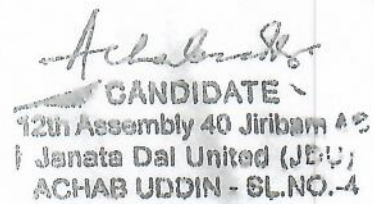 CANDIDATE
12th Assembly 40 Jiribam
Janata Dal United (JDU)
ACHAB UDDIN - SL.NO.-4